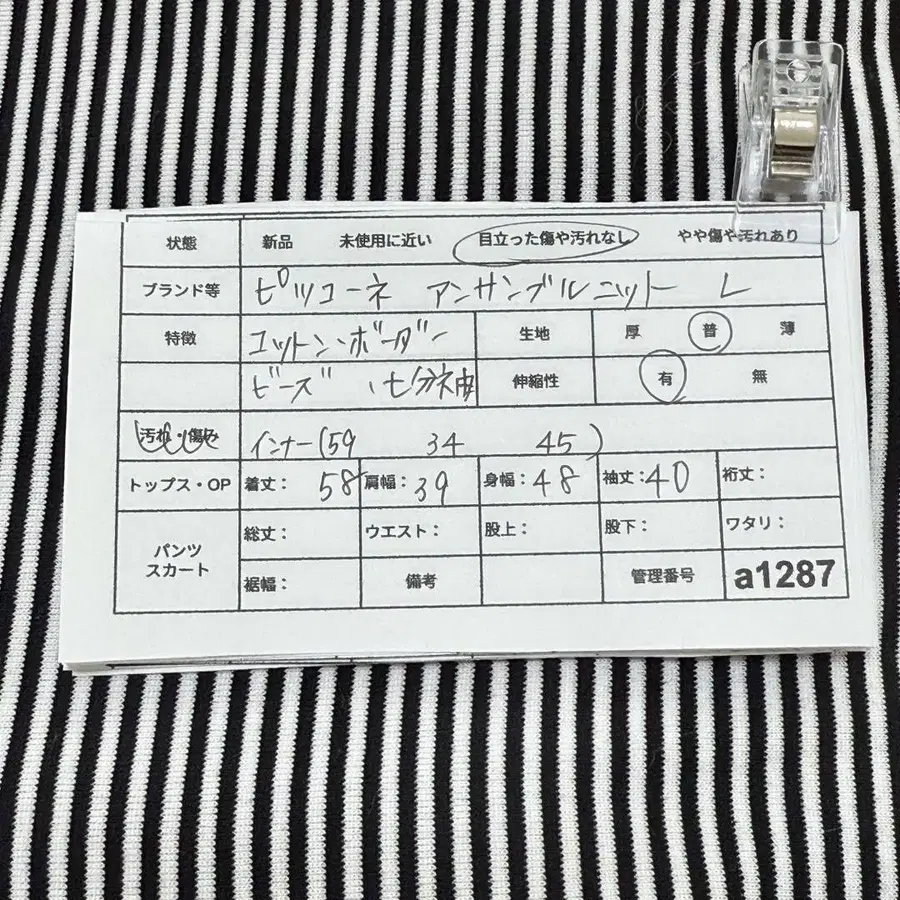 状態 新品 未使用に近い 目立った傷や汚れなし やや傷や汚れあり
ブランド等 ピツコーネ アンサンブルニット L
特徴 コットン・ボーダー 生地 厚 普 薄
ビーズ、七分袖 伸縮性 有 無
汚れ・傷み インナー(59 34 45)
トップス・OP 着丈: 58 肩幅: 39 身幅: 48 袖丈: 40 裄丈:
パンツ 総丈: ウエスト: 股上: 股下: ワタリ:
スカート 裾幅: 備考 管理番号 a1287